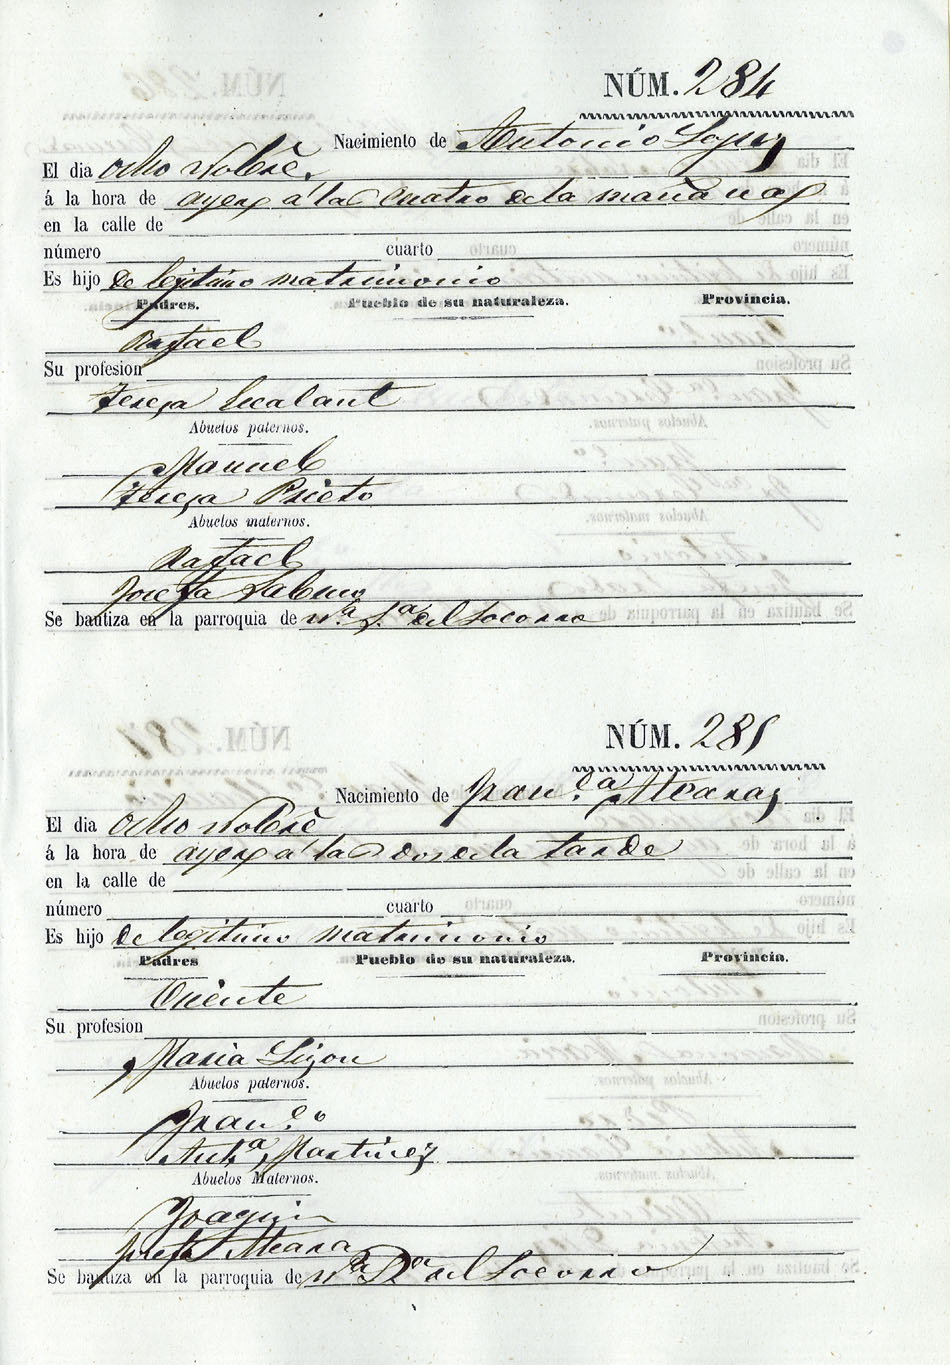 NÚM. 284
Nacimiento de Antonio Lopez
El dia ocho Nobre.
á la hora de ayer a la cuatro de la mañana
en la calle de
número cuarto
Es hijo de legitimo matrimonio
Padres. Pueblo de su naturaleza. Provincia.
Rafael
Su profesion
Teresa Escalant
Abuelos paternos.
Manuel
Teresa Prieto
Abuelos maternos.
Rafael
Josefa
Se bautiza en la parroquia de Nª Sª del Socorro
NÚM. 285
Nacimiento de Franca Alcaraz
El dia ocho Nobre
á la hora de ayer a la dos de la tarde
en la calle de
número cuarto
Es hijo de legitimo matrimonio
Padres Pueblo de su naturaleza. Provincia.
Vicente
Su profesion
Maria Lizon
Abuelos paternos.
Franco
Anta Martinez
Abuelos Maternos.
Joaquin
Josefa
Se bautiza en la parroquia de Nª Sª del Socorro